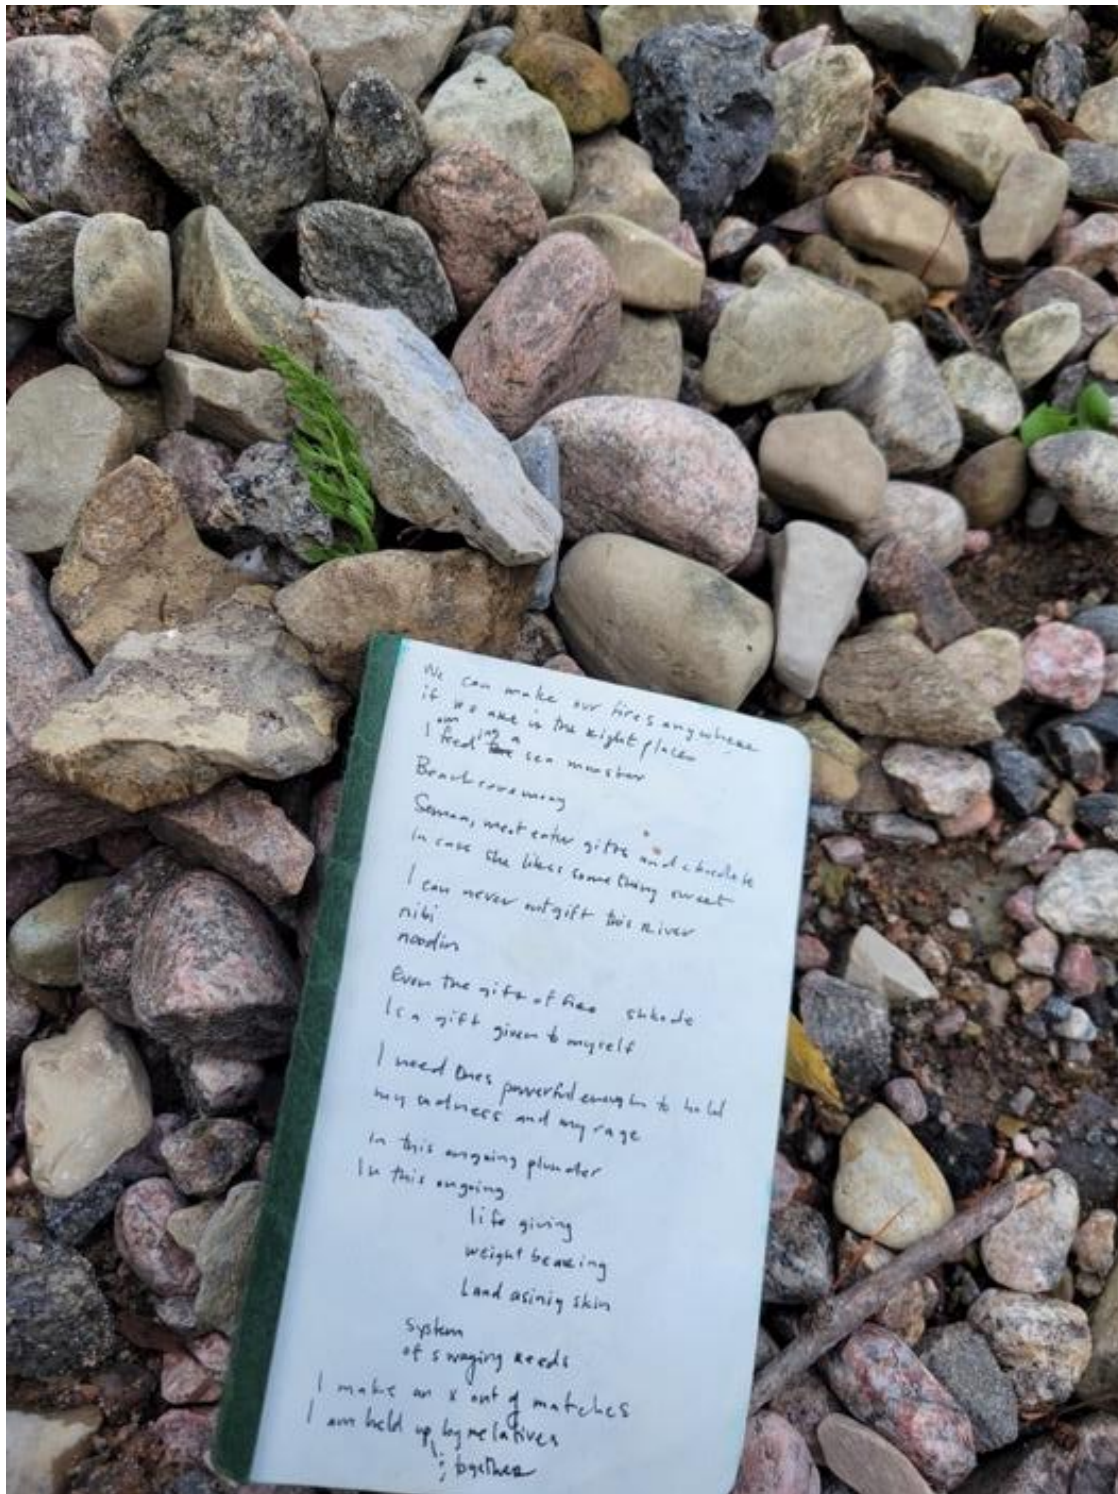 We can make our fires anywhere
if we are in the right places
am ing a
I feed the sea monster
Beach ceremony
Semaa, meat eater gifts and chocolate
in case she likes something sweet
I can never outgift this river
nibi
noodin
Even the gift of fire shkode
Is a gift given to myself
I need ones powerful enough to hold
my sadness and my rage
in this ongoing plunder
In this ongoing
life giving
weight bearing
Land asinig skin
system
of swaging reeds
I make an x out of matches
I am held up by relatives
together